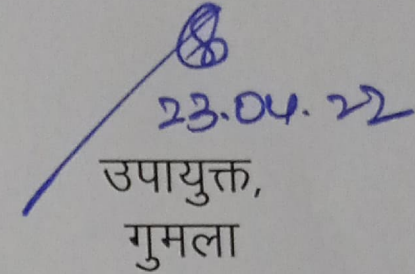 23.04.22
उपायुक्त,
गुमला